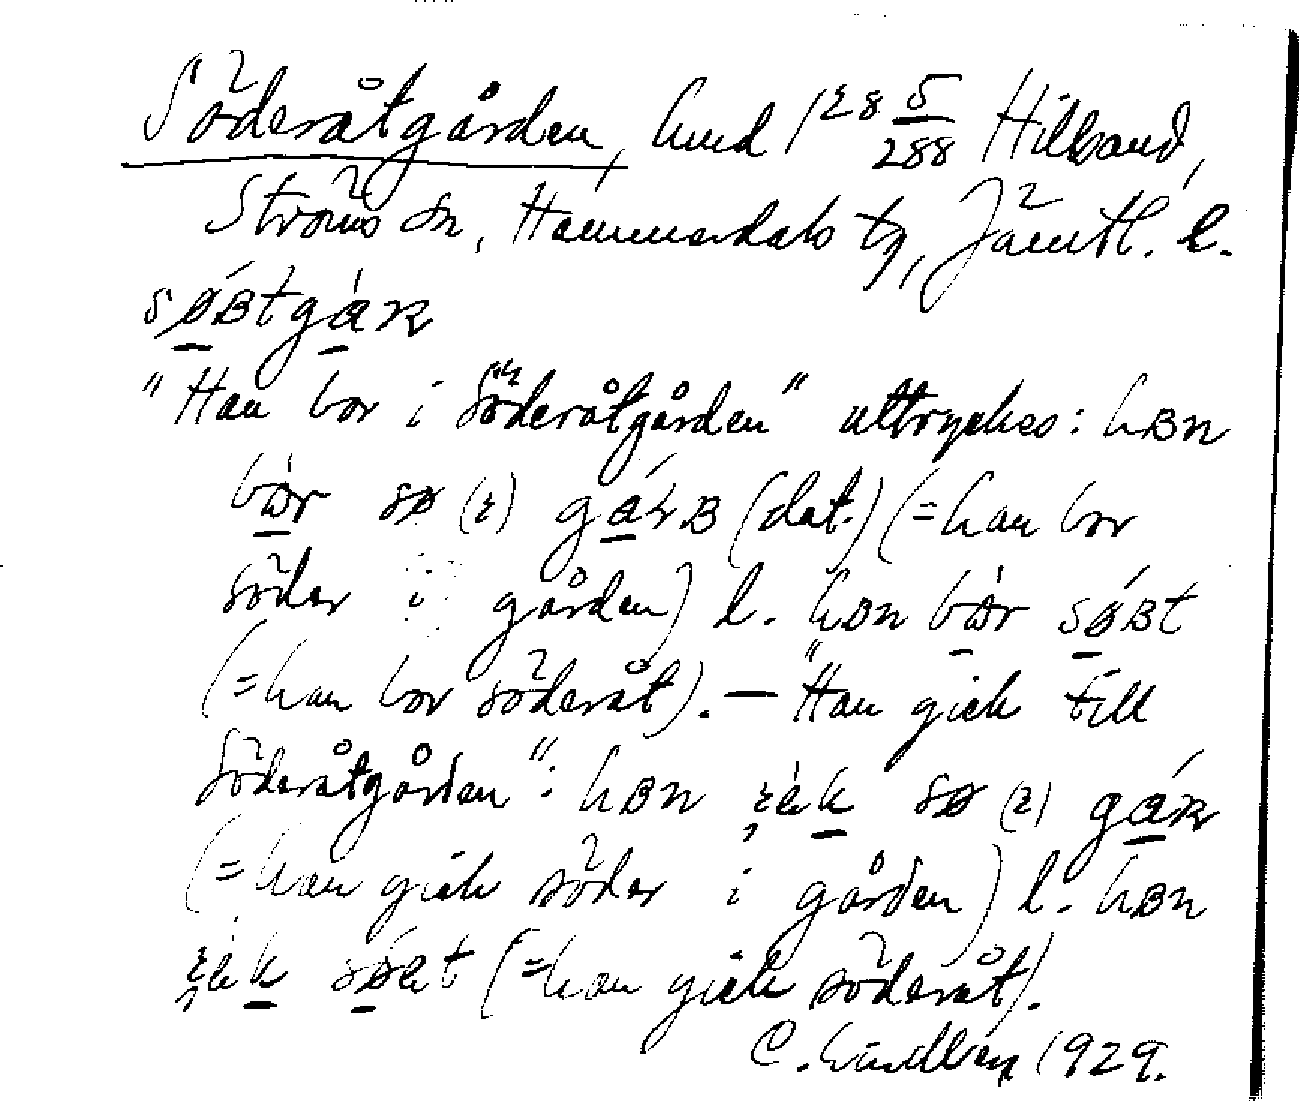 Söderåtgården, hmd 1 28 5/288 Hillsand,
Ströms sn, Hammerdals tg, Jämtl. l.
søʙtgáʀ
"Han bor i Söderåtgården" uttryckes: hʙn
bàr sø (ɪ) gáʀʙ (dat.) (=han bor
söder i gården) l. hʙn bàr søʙt
(=han bor söderåt). — "Han gick till
Söderåtgården": hʙn k sø (ɪ) gáʀ
(=han gick söder i gården) l. hʙn
k søʙt (=han gick söderåt).
C. Lindberg 1929.